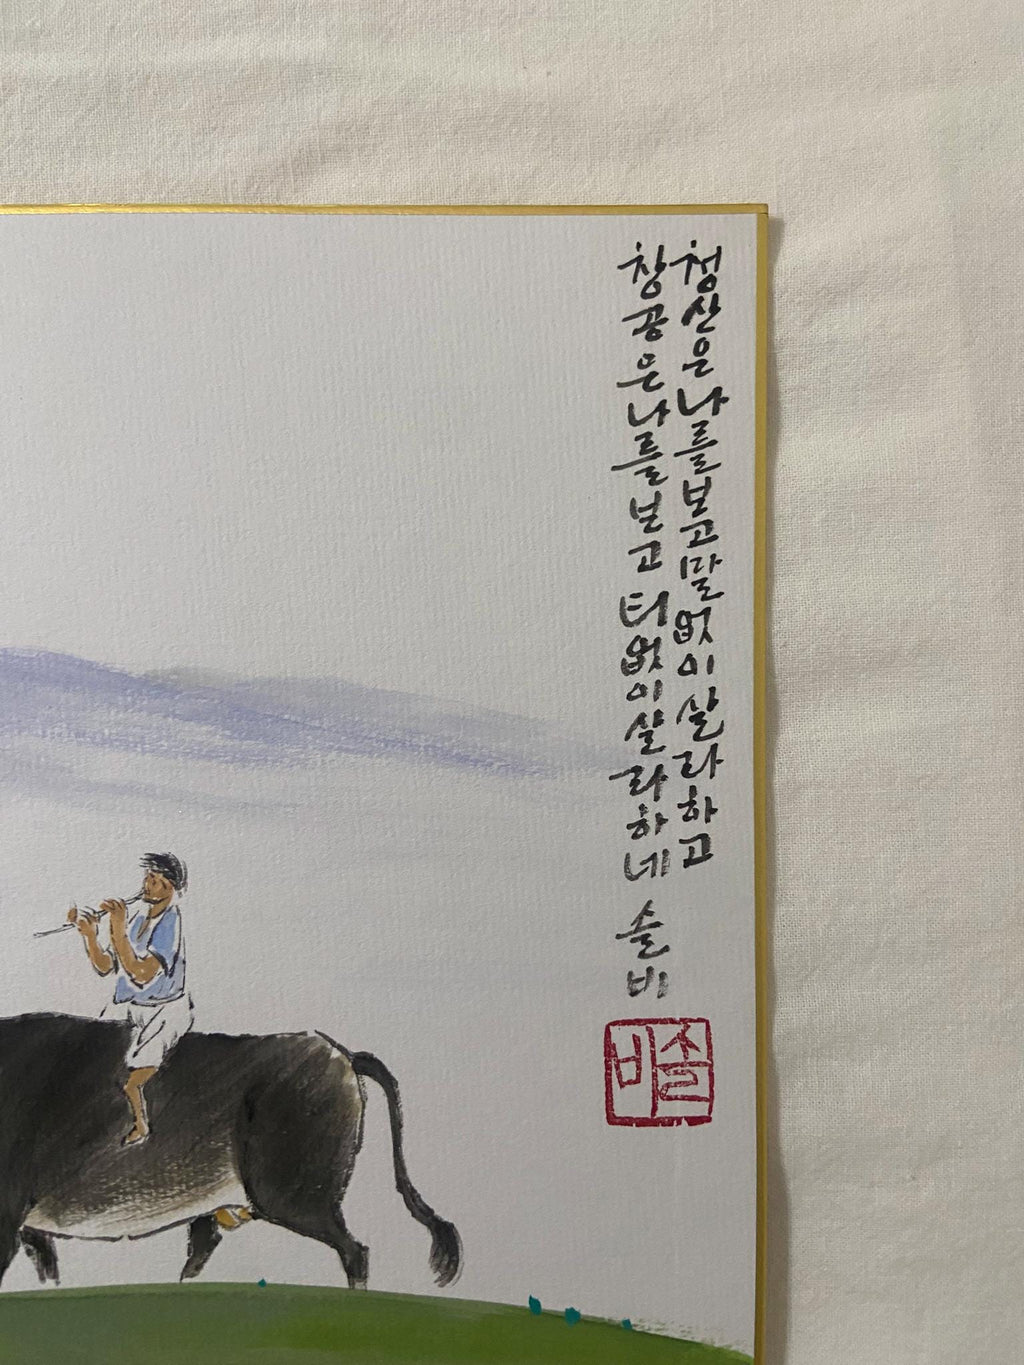 청산은 나를 보고 말 없이 살라하고
창공은 나를 보고 티 없이 살라하네 솔비
솔비